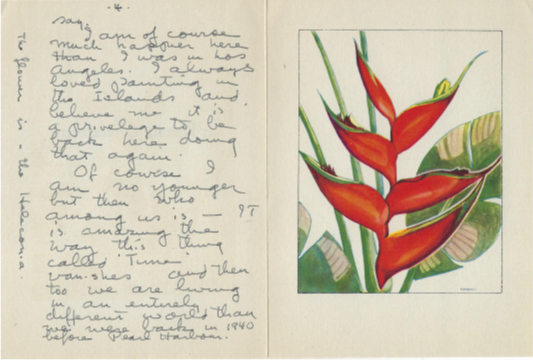 ·4·
say,
I am of course
much happier here
than I was in Los
Angeles. I always
loved painting in
the Islands and,
believe me it is
a privelege to be
back here doing
that again.
Of course I
am no younger
but then who
among us is — IT
is amazing the
way this thing
called "Time"
vanishes and then
too we are living
in an entirely
different world than
we were back in 1940
before Pearl Harbor.
The flower is - the Heleconia.